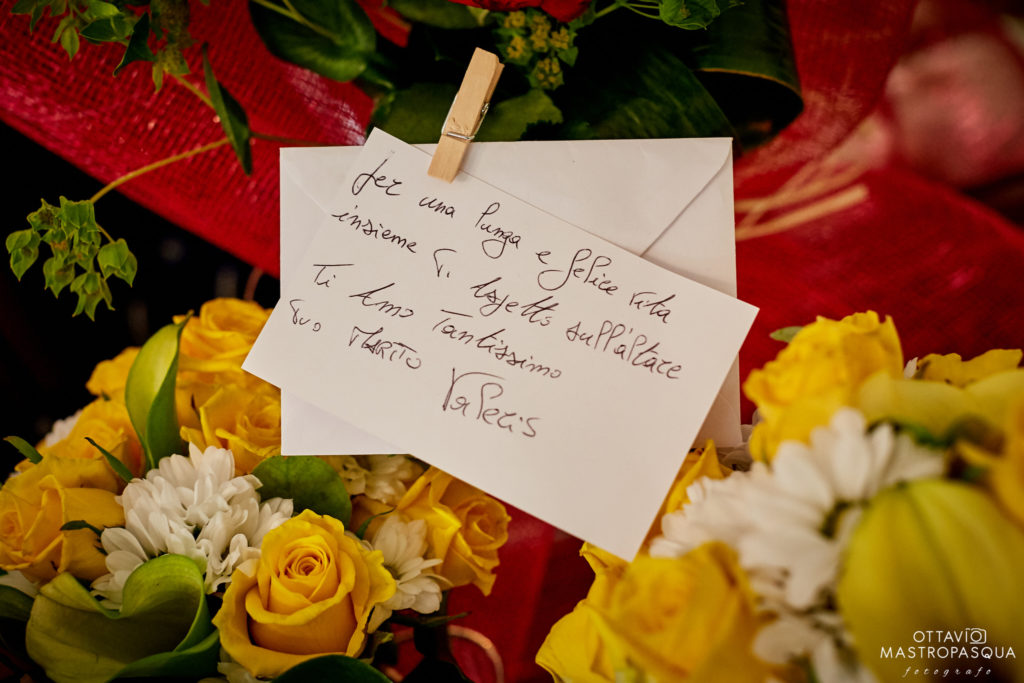 Per una lunga e felice vita
insieme Ti Aspetto sull'altare
Ti Amo Tantissimo
Tuo MARITO
OTTAVIO
MASTROPASQUA
fotografo